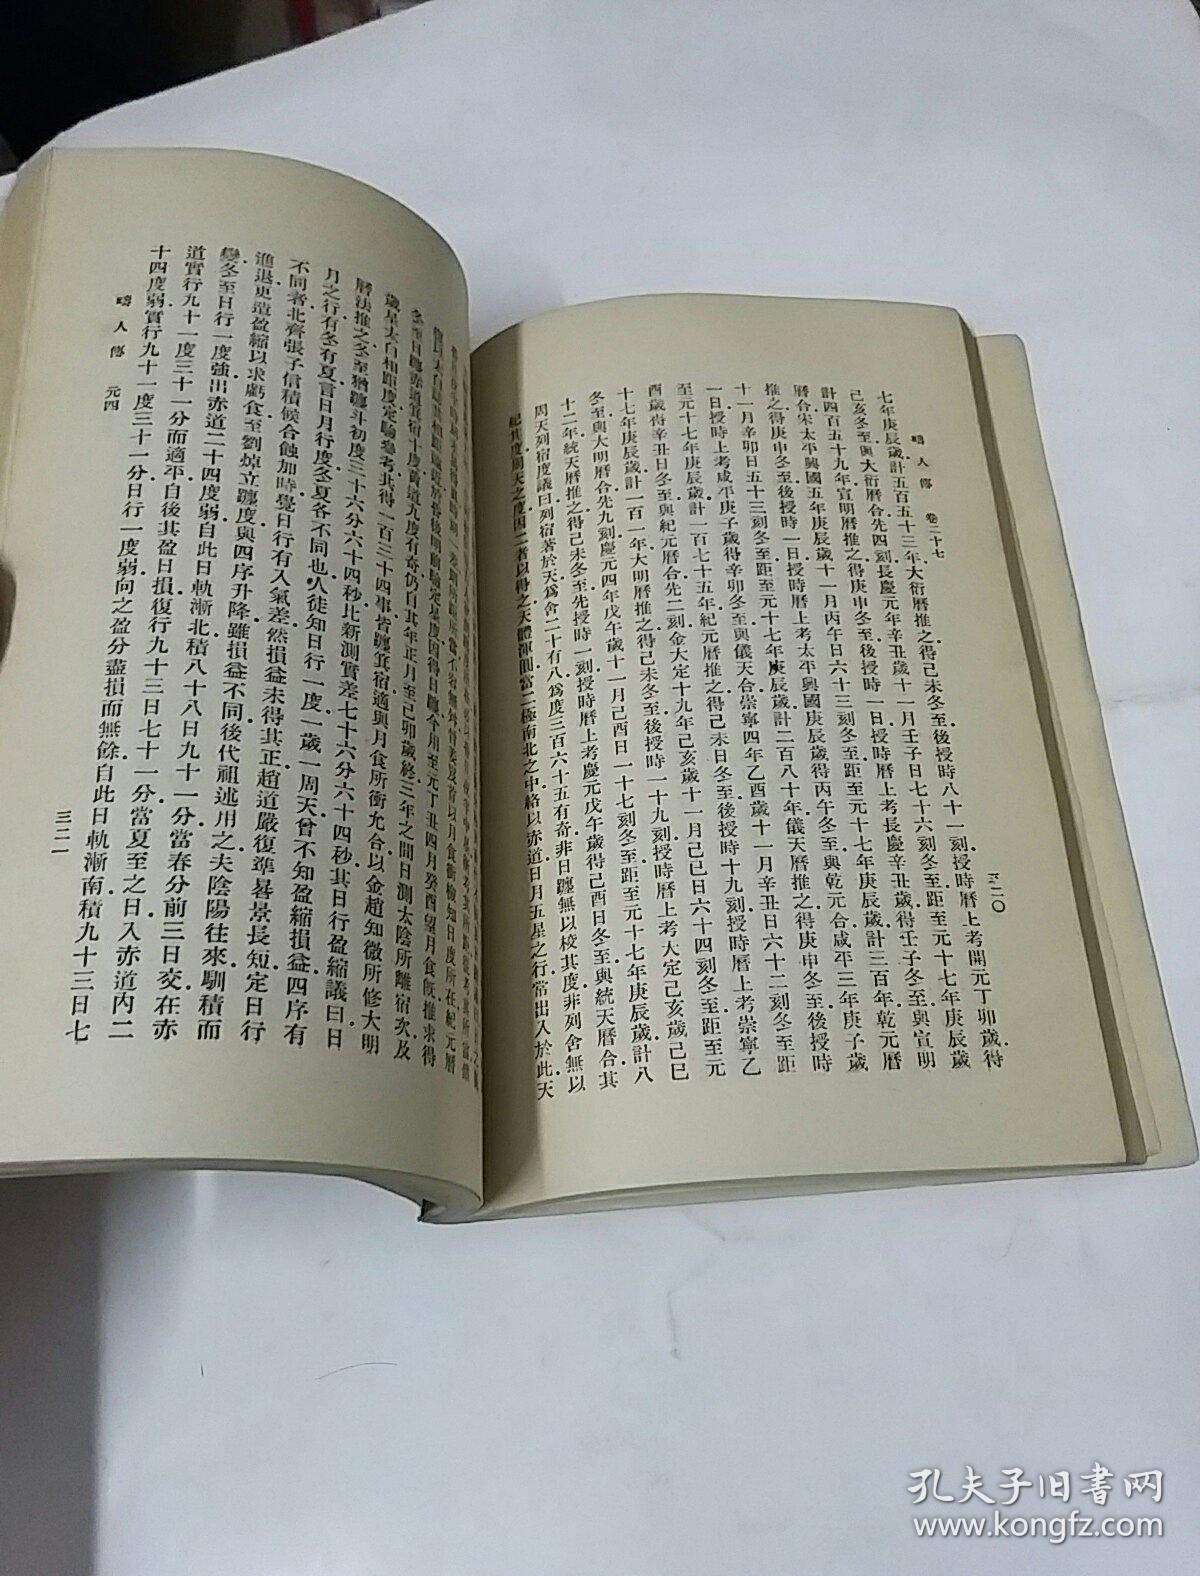 疇人傳　卷二十七
三二〇
七年庚辰歲計五百五十三年大衍曆推之得己未冬至後授時八十一刻授時曆上考開元丁卯歲得
己亥冬至與大衍曆合先四刻長慶元年辛丑歲十一月壬子日七十六刻冬至距至元十七年庚辰歲
計四百五十九年宣明曆推之得庚申冬至後授時一日授時曆上考長慶辛丑歲得壬子冬至與宣明
曆合宋太平興國五年庚辰歲十一月丙午日六十三刻冬至距至元十七年庚辰歲計三百年乾元曆
推之得庚申冬至後授時一日授時曆上考太平興國庚辰歲得丙午冬至與乾元合咸平三年庚子歲
十一月辛卯日五十三刻冬至距至元十七年庚辰歲計二百八十年儀天曆推之得庚申冬至後授時
一日授時上考咸平庚子歲得辛卯冬至與儀天合崇寧四年乙酉歲十一月辛丑日六十二刻冬至距
至元十七年庚辰歲計一百七十五年紀元曆推之得己未日冬至後授時十九刻授時曆上考崇寧乙
酉歲得辛丑日冬至與紀元曆合先二刻金大定十九年己亥歲十一月己巳日六十四刻冬至距至元
十七年庚辰歲計一百一年大明曆推之得己未冬至後授時一十九刻授時曆上考大定己亥歲己巳
冬至與大明曆合先九刻慶元四年戊午歲十一月己酉日一十七刻冬至距至元十七年庚辰歲計八
十二年統天曆推之得己未冬至先授時一刻授時曆上考慶元戊午歲得己酉日冬至與統天曆合其
周天列宿度議曰列宿著於天爲舍二十有八爲度三百六十五有奇非日躔無以校其度非列舍無以
紀其度周天之度因二者以得之天體渾圓當二極南北之中絡以赤道日月五星之行常出入於此天
冬至日躔赤道箕宿十度黃道九度有奇仍自其年正月至己卯歲終三年之間日測太陰所離宿次及
歲星太白相距度定驗參考共得一百三十四事皆躔箕宿適與月食所衝允合以金趙知微所修大明
曆法推之冬至猶躔斗初度三十六分六十四秒比新測實差七十六分六十四秒其日行盈縮議曰日
月之行有冬有夏言日月行度冬夏各不同也人徒知日行一度一歲一周天曾不知盈縮損益四序有
不同者北齊張子信積候合蝕加時覺日行有入氣差然損益未得其正趙道嚴復準晷景長短定日行
進退更造盈縮以求虧食至劉焯立躔度與四序升降雖損益不同後代祖述用之夫陰陽往來馴積而
變冬至日行一度強出赤道二十四度弱自此日軌漸北積八十八日九十一分當春分前三日交在赤
道實行九十一度三十一分而適平自後其盈日損復行九十三日七十一分當夏至之日入赤道內二
十四度弱實行九十一度三十一分日行一度弱向之盈分盡損而無餘自此日軌漸南積九十三日七
疇人傳　元四
三二一
孔夫子旧書网
www.kongfz.com